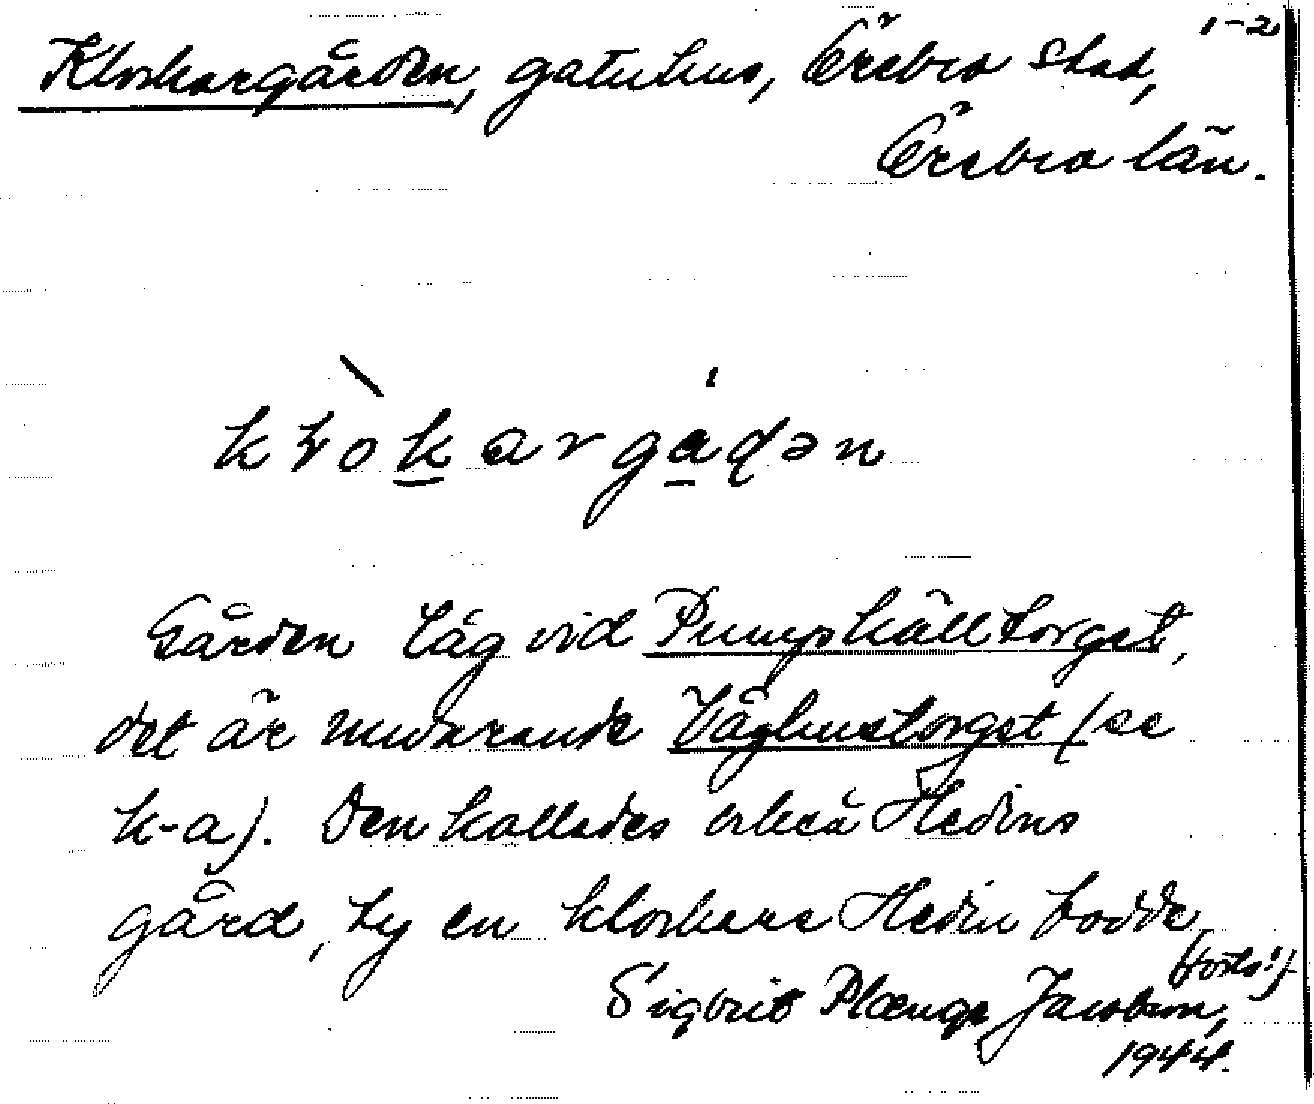 1-2
Klockargården, gatuhus, Örebro stad,
Örebro län.
Gården låg vid Pumpkälltorget,
det är nuvarande Våghustorget (se
k-a). Den kallades också Hedins
gård, ty en klockare Hedin bodde
(forts!)
Sigbrit Plænge Jacobson,
1944.